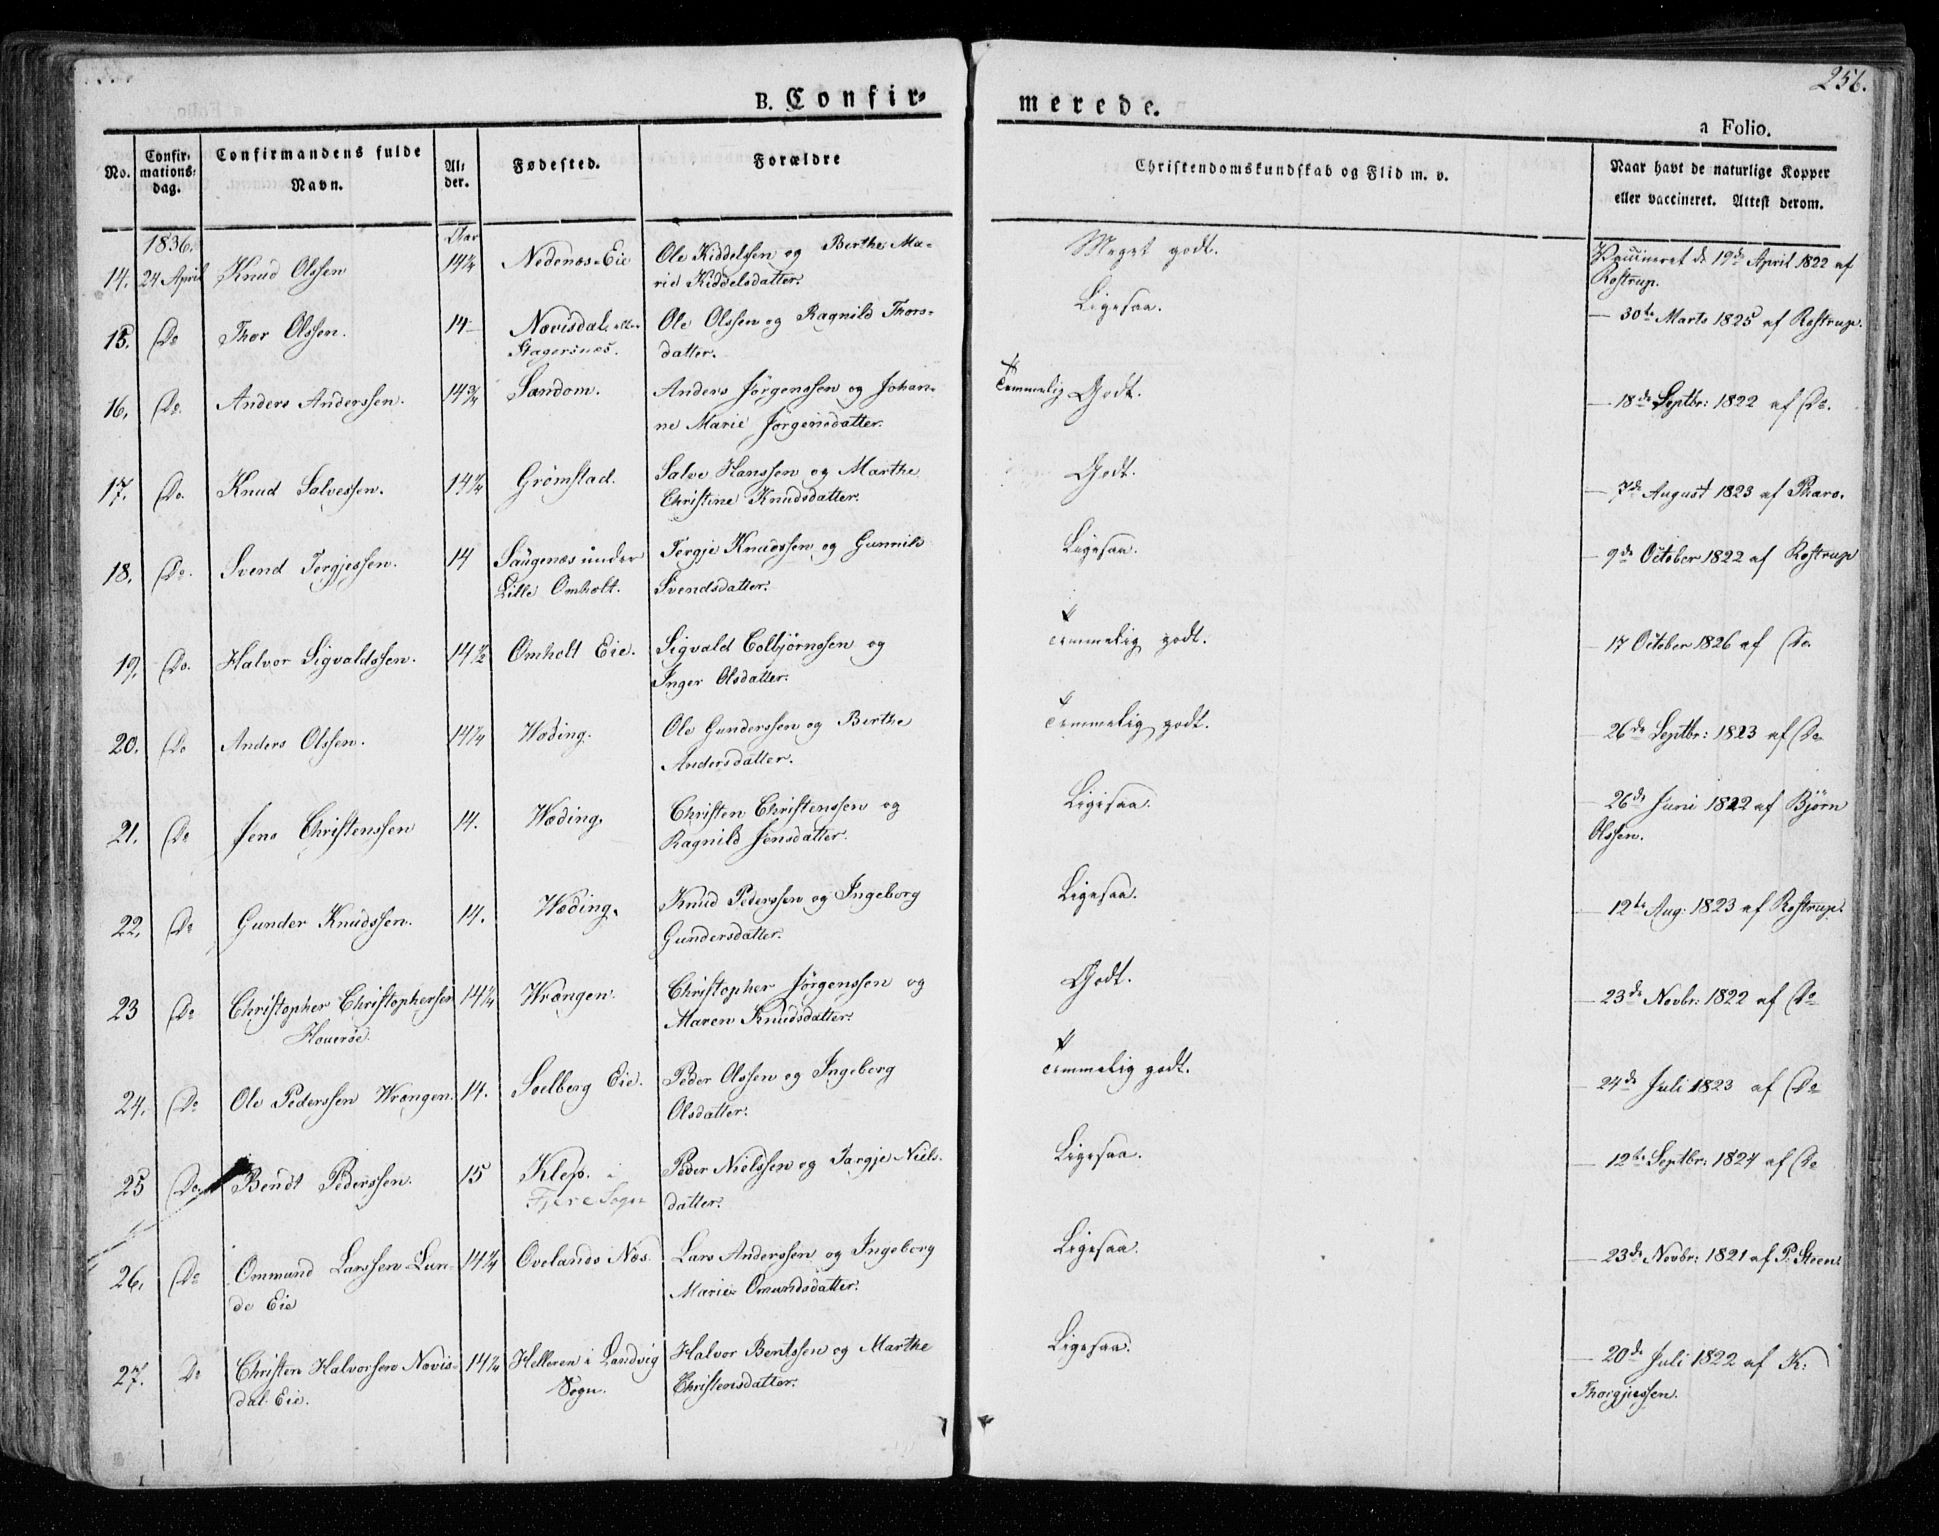 256.
B. Confirmerede.
a Folio.
No. Confirmationsdag. Confirmandens fulde Navn. Alder. Fødested. Forældre Christendomskundskab og Flid m. v. Naar havt de naturlige Kopper eller vaccineret. Attest derom.
1836. Aar
14. 24 April Knud Olssen 14¼ Nedenæs-Eie Ole Kiddelssen og Berthe Ma-
rie Kiddelsdatter. Meget godt. Vaccineret d. 19de April 1822 af
Rostrup.
15. Do Thor Olssen. 14 Nævisdal
Ole Olssen og Ragnild Thors-
datter. Ligesaa. — 30te Marts 1825 af Rostrup.
16. Do. Anders Anderssen. 14¾ Sandom. Anders Jørgenssen og Johan-
ne Marie Jørgensdatter. Temmelig Godt. — 18de Septbr: 1822 af Do.
17. Do. Knud Salvessen. 14¼ Grømstad. Salve Hanssen og Marthe
Christine Knudsdatter. Godt. — 7de August 1823 af Tharo.
18. Do. Svend Tergjessen. 14 Saugenæs under
Lille Omholt. Tergje Knudssen og Gunnild
Svendsdatter. Ligesaa. — 9de October 1822 af Rostrup
19. Do. Halvor Sigvaldssen. 14½ Omholt Eie. Sigvald Colbjørnssen og
Inger Olsdatter. Temmelig godt. — 17 October 1826 af Do.
20. Do Anders Olssen. 14¼ Wæding. Ole Gunderssen og Berthe
Andersdatter. Temmelig godt. — 26de Septbr: 1823 af Do
21. Do Jens Christenssen 14. Wæding. Christen Christenssen og
Ragnild Jensdatter. Ligesaa. — 26de Juni 1822 af Bjørn
Olssen.
22. Do Gunder Knudssen. 14. Wæding. Knud Pederssen og Ingeborg
Gundersdatter. Ligesaa. — 12te Aug: 1823 af Rostrup.
23 Do Christopher Christophersen
Haverøe. 14¼ Wrængen. Christopher Jørgenssen og
Maren Knudsdatter. Godt. — 23de Novbr: 1822 af Do
24. Do Ole Pederssen Wrængen. 14. Soelberg Eie. Peder Olssen og Ingeborg
Olsdatter. Temmelig godt. — 24de Juli 1823 af Do
25 Do. Bendt Pederssen. 15 Klep. i
Fjære Sogn Peder Nielssen og Targje Niels-
datter. Ligesaa. — 12te Septbr: 1824 af Do
26. Do Ommund Larssen Lun-
de Eie 14¼ Ovelands Næs. Lars Anderssen og Ingeborg
Marie Omundsdatter. Ligesaa. — 23de Novbr: 1821 af P. Steen.
27. Do Christen Halvorsen Nævis-
dal Eie. 14¼ Helleren i Landvig
Sogn. Halvor Bentssen og Marthe
Christensdatter. Ligesaa. — 20de Juli 1822 af K:
Thorgjessen.